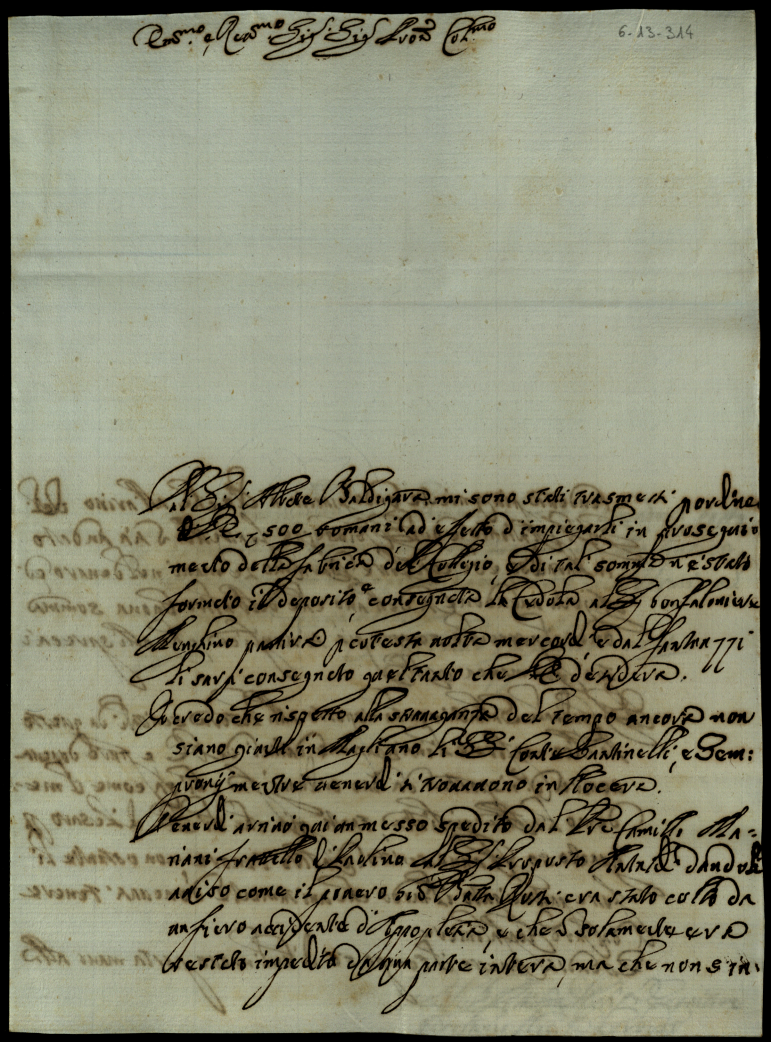 Ill.mo e Rev.mo Sig. Sig. Pron Col.mo
6-13-314
Dal Sig. Abbate Baldigara mi sono stati trasmessi per ordine
500 romani ad effetto d'impiegarli in proseguio
mento della fabrica del Collegio, e di tal somma n'è stato
formeto il deposito, e consegneta la Cedola al Sig. Confaloniere
partirà p cotesta volta mercordì, e dal Fantuzzi
li sarà consegneto quel tanto che desidera.
Credo che rispetto alla stravaganza del tempo ancora non
siano giunti in Magliano li SS. Conte Santinelli, e Sem:
pronij mentre venerdì si trovavono in Nocera.
Venerdì arrivò qui un messo spedito dal Pre Camillo Ma-
riani fratello di Paolino al Sig. Proposto dandoli
aviso come il povero Gio. Batta era stato colto da
un fiero accidente d'Apoplesia, e che solamente era
restato impedito da una parte intera, ma che non si in: